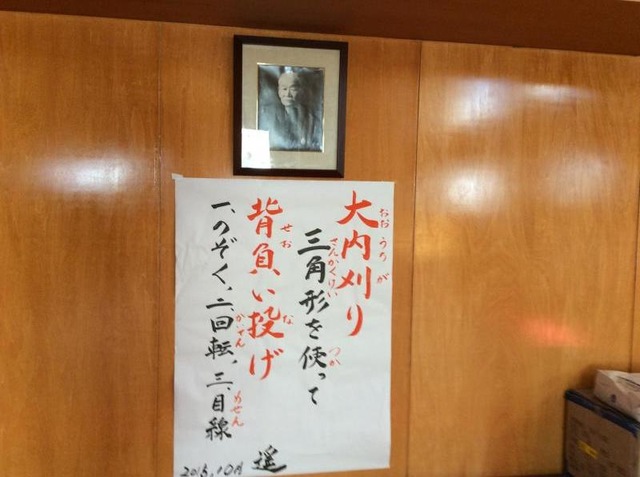 おお うち が
大内刈り
さんかくけい つか
三角形を使って
せお な
背負い投げ
かいてん めせん
一、のぞく、二、回転、三、目線
遥
2015.10月